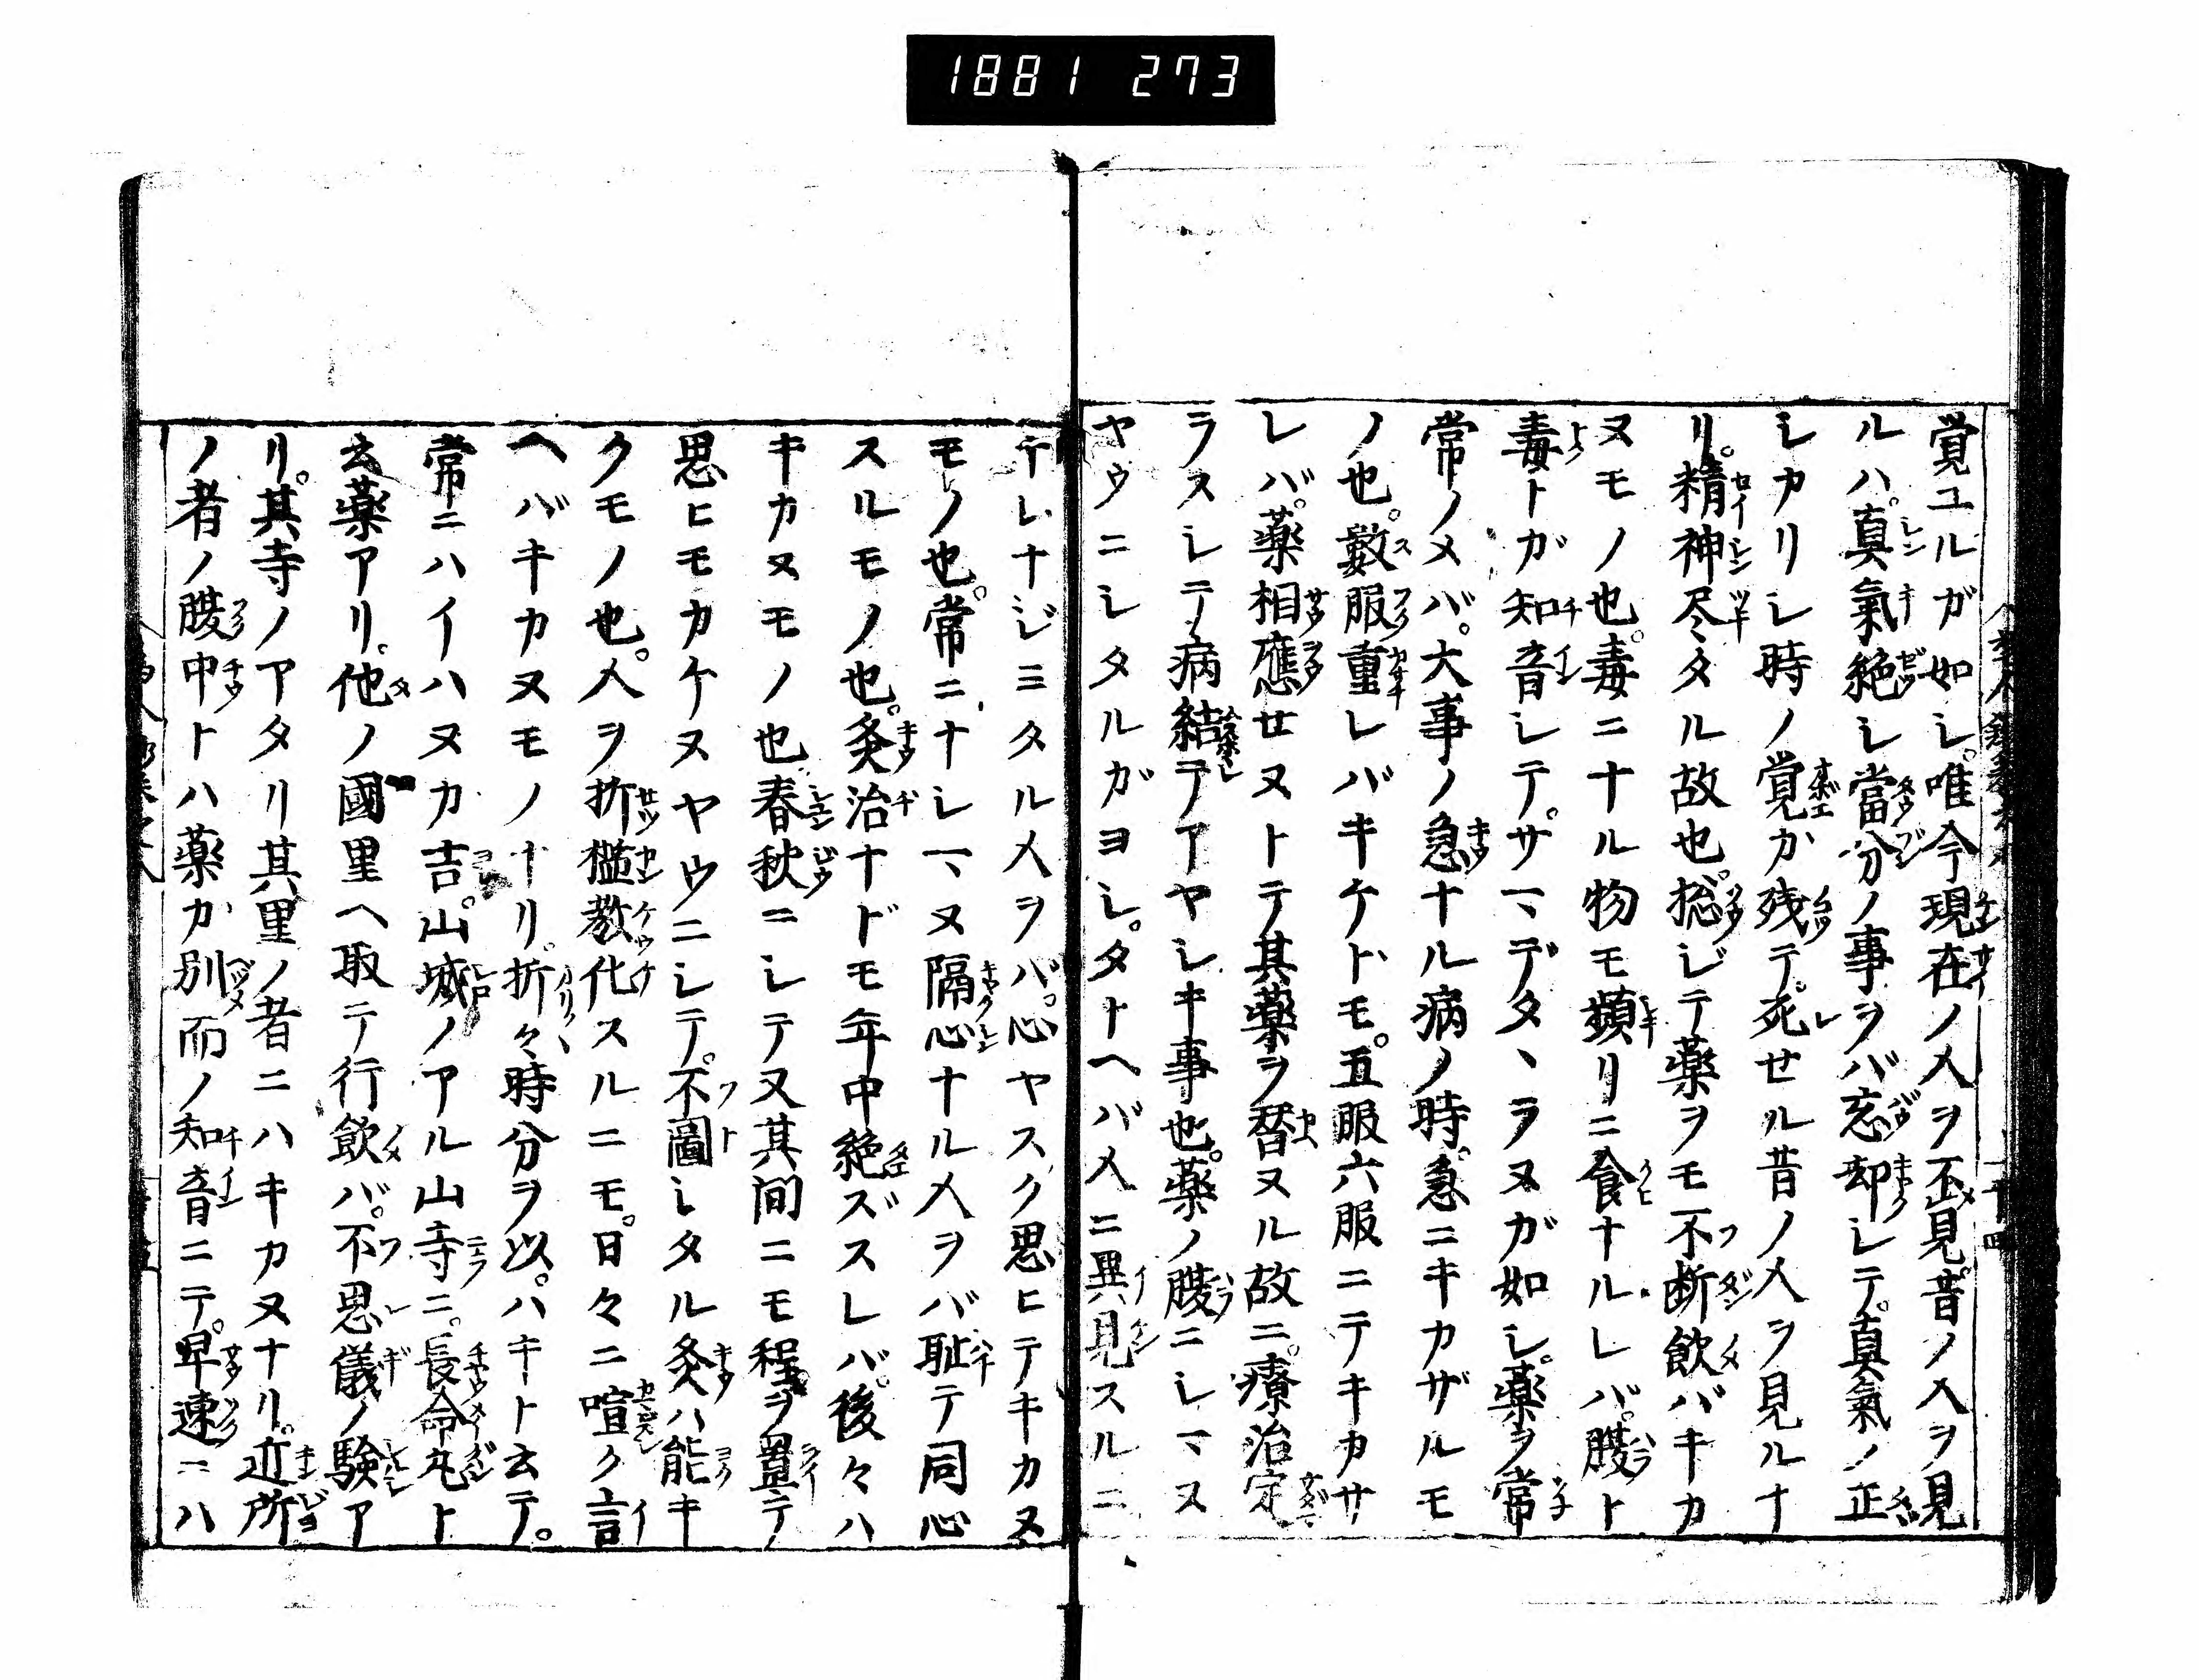 1881 273
覚ユルガ如シ。唯今現在ノ人ヲ不見。昔ノ人ヲ見
ルハ。真氣絶シ當分ノ事ヲバ忘却シテ。真氣ノ正
シカリシ時ノ覚カ残テ。死セル昔ノ人ヲ見ルナ
リ。精神尽タル故也。捴ジテ薬ヲモ不断飲バキカ
ヌモノ也。毒ニナル物モ頻リニ食ナルレバ。腹ト
毒トガ知音シテ。サマデタヽラヌガ如シ。薬ヲ常
常ノメバ。大事ノ急ナル病ノ時。急ニキカザルモ
ノ也。數服重レバキケトモ。五服六服ニテキカサ
レバ。薬相應セヌトテ其薬ヲ替ヌル故ニ。療治定
ラスシテ病結テアヤシキ事也。薬ノ腹ニシマヌ
ヤウニシタルガヨシ。タトヘバ人ニ異見スルニ
テレナジミタル人ヲバ。心ヤスク思ヒテキカヌ
モノ也。常ニナシマヌ隔心ナル人ヲバ耻テ同心
スルモノ也。灸治ナドモ年中絶ズスレバ。後々ハ
キカヌモノ也春秋ニシテ又其間ニモ程ヲ置テ
思ヒモカケヌヤウニシテ。不圖シタル灸ハ能キ
クモノ也。人ヲ折檻教化スルニモ。日々ニ喧ク言
ヘバキカヌモノナリ。折々時分ヲ以。ハキト云テ。
常ニハイハヌカ吉。山城ノアル山寺ニ。長命丸ト
云薬アリ。他ノ國里ヘ取テ行飲バ。不思儀ノ験ア
リ。其寺ノアタリ其里ノ者ニハキカヌナリ。近所
ノ者ノ腹中トハ薬カ別而ノ知音ニテ。早速ニハ